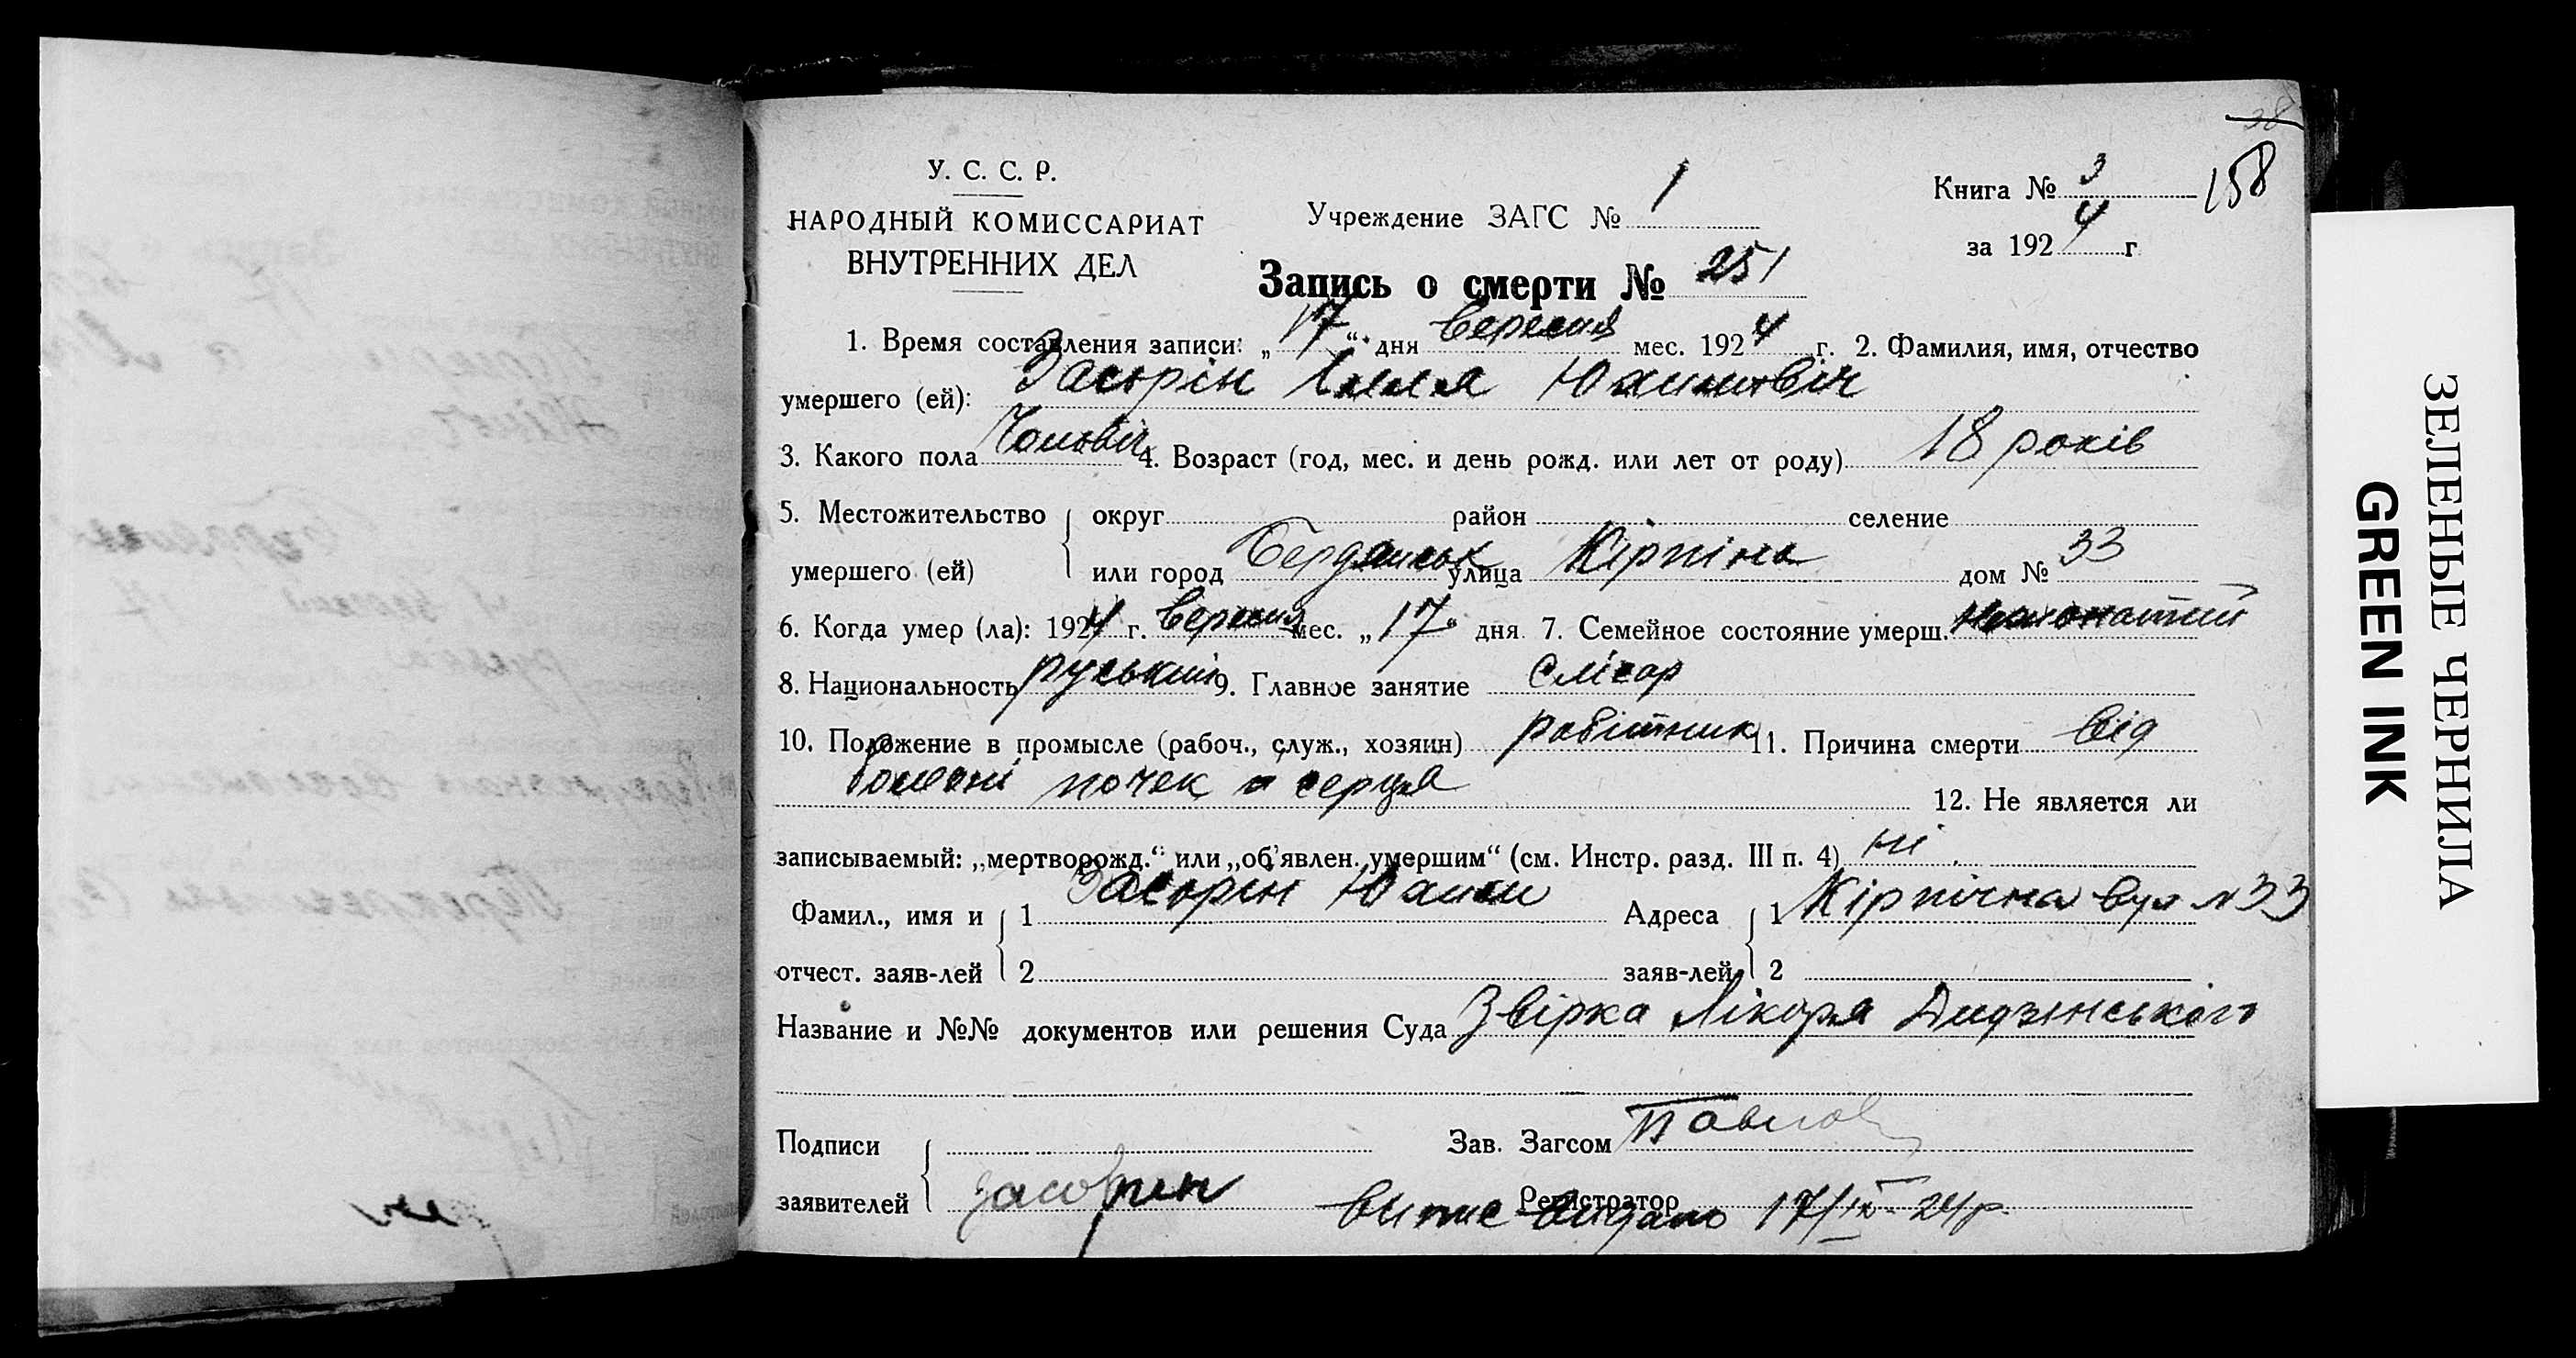 38
У. С. С. Р.
НАРОДНЫЙ КОМИССАРИАТ
ВНУТРЕННИХ ДЕЛ
Учреждение ЗАГС № 1
Книга № 3
158
за 1924 г
Запись о смерти № 251
1. Время составления записи: „17“ дня вересня мес. 1924 г. 2. Фамилия, имя, отчество
умершего (ей): Засорін Ілля
3. Какого пола Чоловіч 4. Возраст (год, мес. и день рожд. или лет от роду) 18 років
5. Местожительство округ район селение
умершего (ей) или город Бердянськ улица Кірпічна дом № 33
6. Когда умер (ла): 1924 г. вересня мес. „17“ дня 7. Семейное состояние умерш. нежонатий
8. Национальность руський 9. Главное занятие Слісар
10. Положение в промысле (рабоч., служ., хозяин) робітник 11. Причина смерти від
болезні почек и серця 12. Не является ли
записываемый: „мертворожд.“ или „об'явлен. умершим“ (см. Инстр. разд. III п. 4) ні.
Фамил., имя и 1 Засорін Адреса 1 Кірпічна вул № 33
отчест. заяв-лей 2 заяв-лей 2
Название и №№ документов или решения Суда Звірка Лікаря
Подписи Зав. Загсом Павлов
заявителей Засорин Регистратор
Выпис видано 17/IX-24р.
ЗЕЛЕНЫЕ ЧЕРНИЛА
GREEN INK